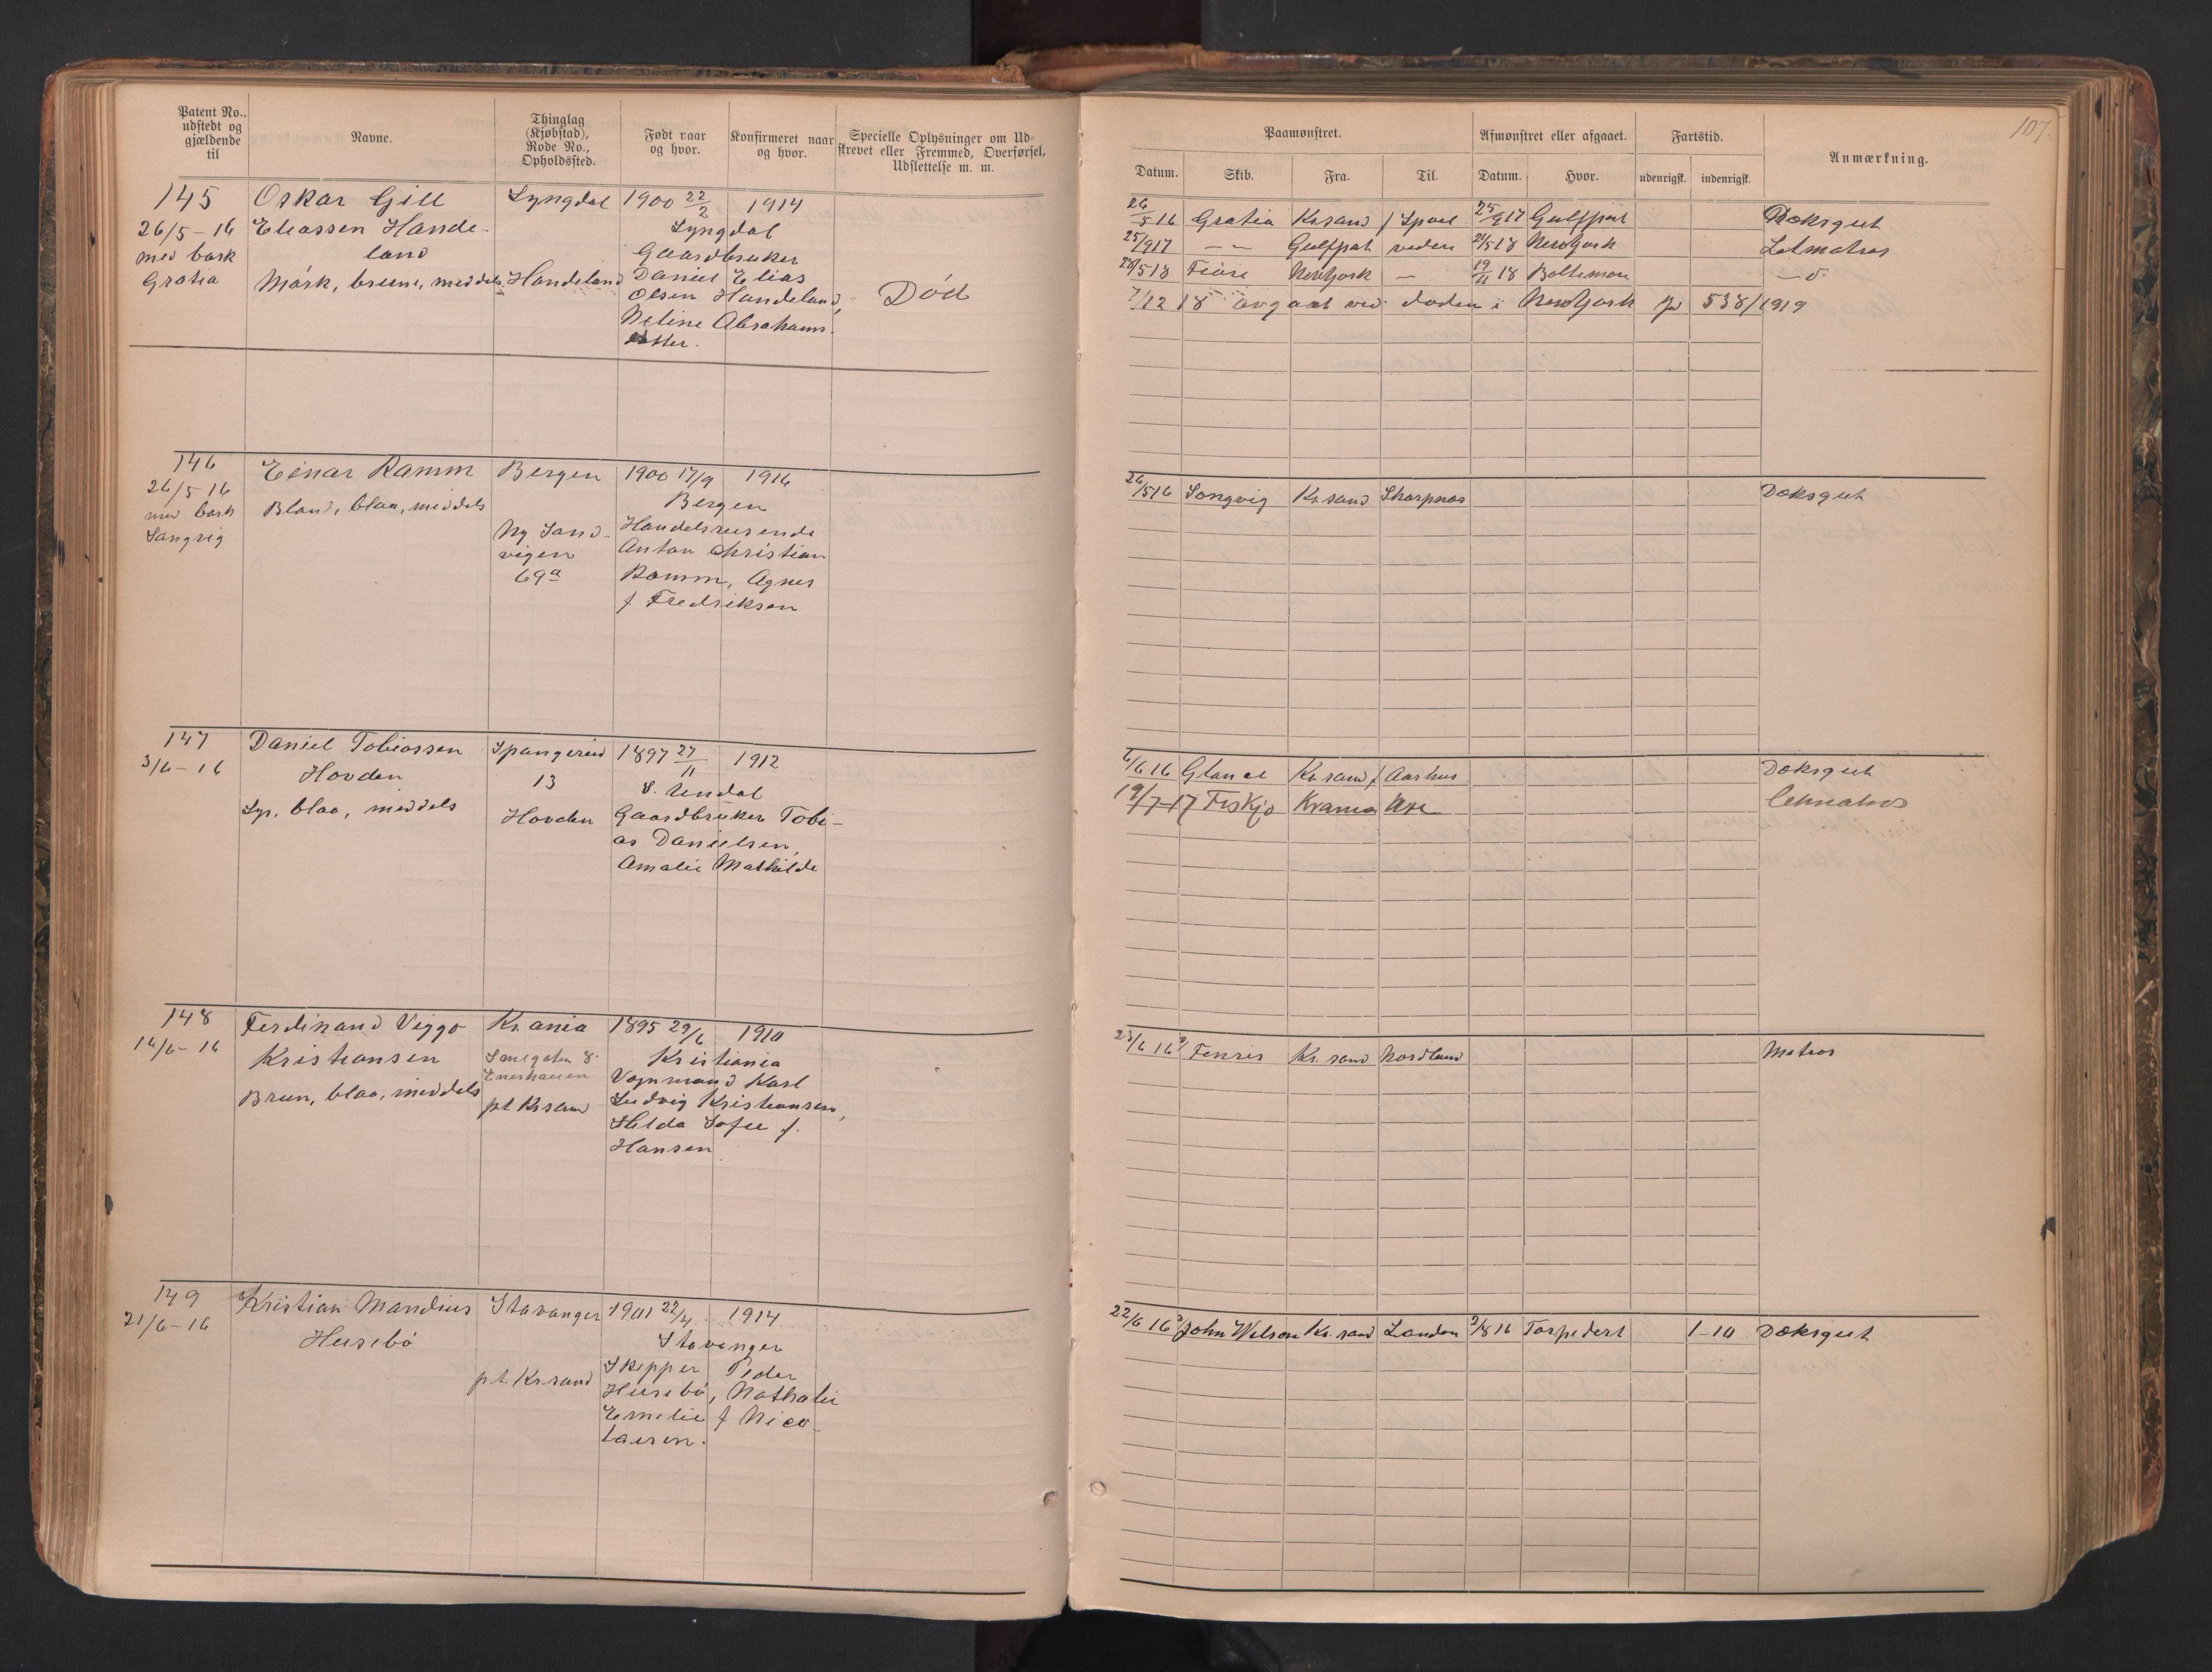 Patent No.,
udstedt og
gjældende
til
Navne.
Thinglag
(Kjøbstad),
Rode No.,
Opholdssted.
Født naar
og hvor.
Konfirmeret naar
og hvor.
Specielle Oplysninger om Ud-
skrevet eller Fremmed, Overførsel,
Udslettelse m. m.
145
26/5-16
med bark
Gratia
Oskar Gill
Eliassen Hande-
land
Mörk, brune, meddels
Lyngdal
Handeland
1900 22/2
1914
Lyngdal
Gaardbruker
Daniel Elias
Olsen Handeland,
Neline Abrahams
datter.
Död
146
26/5 16
med bark
Songvig
Einar Ramm
Blond, blaa, meddels
Bergen
Ny Sand-
vigen
69a
1900 17/9
1916
Bergen
Handelsreisende
Anton Christian
Ramm, Agnes
f Fredriksen
147
3/6-16
Daniel Tobiassen
Hovden
Lys, blaa, meddels
Spangereid
13
Hovden
1897 27/11
1912
S. Undal
Gaardbruker Tobi-
as Danielsen,
Amalie Mathilde
148
16/6-16
Ferdinand Viggo
Kristiansen
Brun, blaa, meddels
Kr.ania
Enerhauen
pt Krsand
1895 29/6
1910
Kristiania
Vognmand Karl
Ludvig Kristiansen,
Hilda Sofie f.
Hansen
149
21/6-16
Kristian Mandius
Husebö
Stavanger
p.t. Kr.sand
1901 22/4
1914
Stavanger
Skipper Peder
Husebö, Nathalie
Emelie f Nico-
laisen.
107.
Paamønstret.
Afmønstret eller afgaaet.
Fartstid.
Anmærkning.
Datum.
Skib.
Fra.
Til.
Datum.
Hvor.
udenrigsk.
indenrigsk.
26/5 16 Gratia Kr.sand 25/9 17 Gulfport Dæksgut
25/9 17 — — Gulfport videre 21/5 18 NewYork Letmatros
28/5 18 NewYork — 19/11 18 Baltimore — d.
7/12 18 avgaat ved döden i NewYork Jr 538/1919
26/5 16 Songvig Kr.sand Sharpnes Dæksgut
6/6 16 Glance Kr.sand f Aarhus Dæksgut
19/7-17 Kr.ania Letmatros
23/6 16 Fenris Kr.sand Nordland Matros
22/6 16 John Wilson Kr.sand London 9/8 16 Torpedert 1-10 Dæksgut